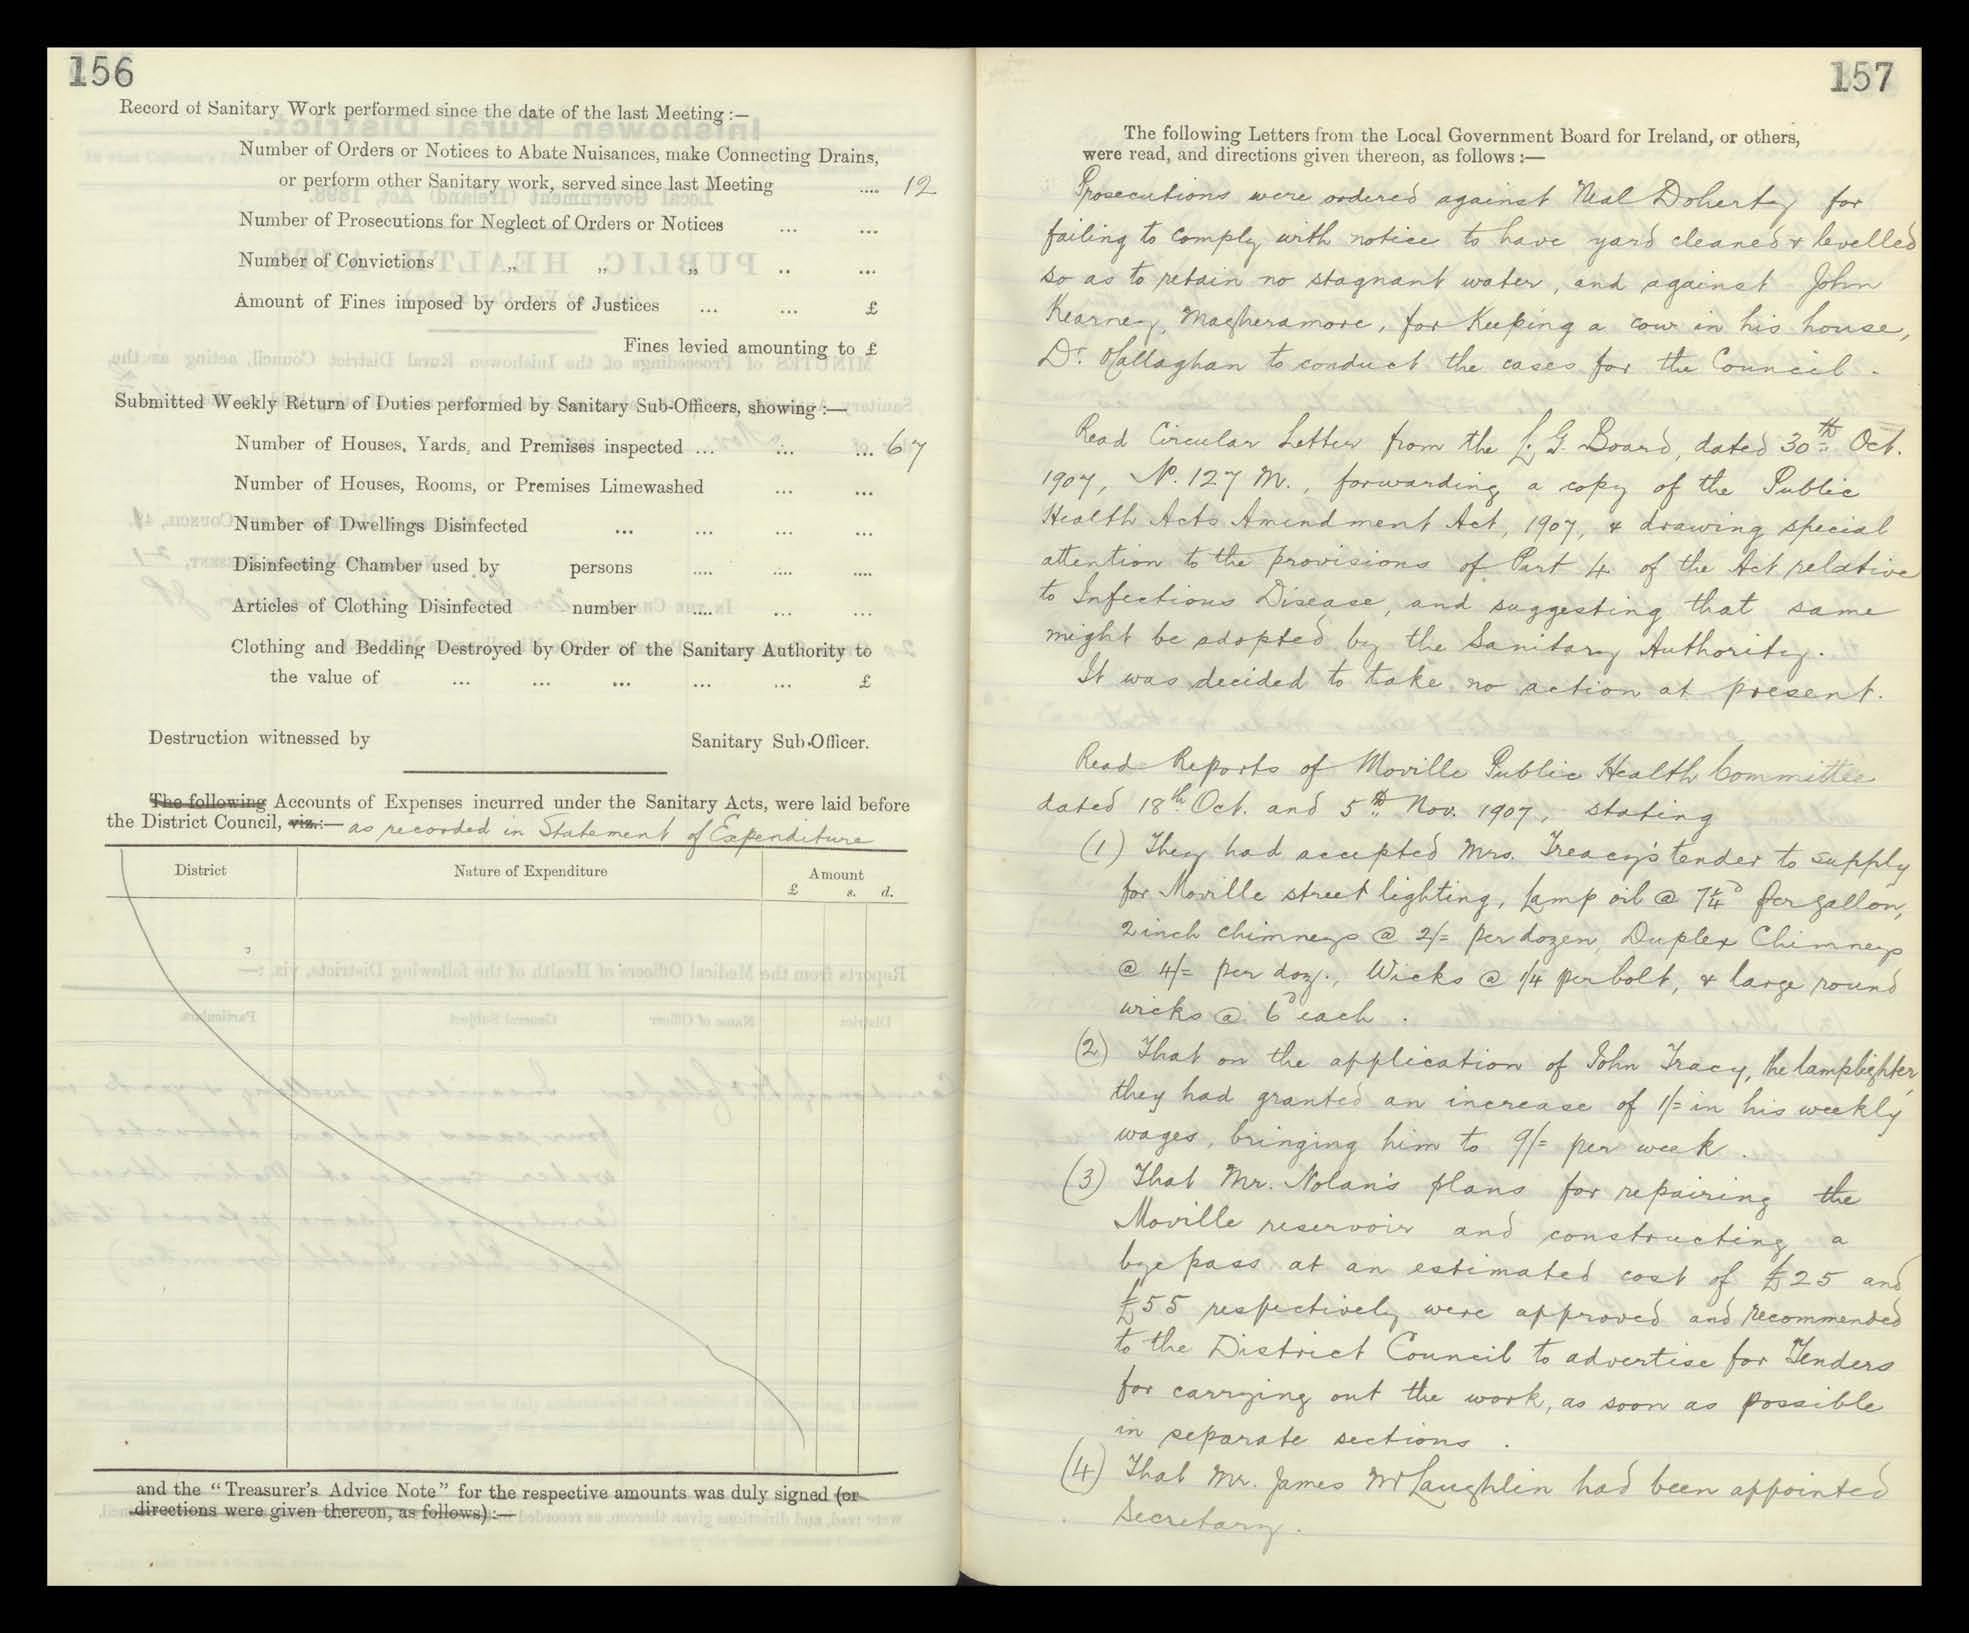 156
Record of Sanitary Work performed since the date of the last Meeting :—
Number of Orders or Notices to Abate Nuisances, make Connecting Drains,
or perform other Sanitary work, served since last Meeting .... 12
Number of Prosecutions for Neglect of Orders or Notices ... ...
Number of Convictions „ „ „ .. ...
Amount of Fines imposed by orders of Justices ... ... £
Fines levied amounting to £
Submitted Weekly Return of Duties performed by Sanitary Sub-Officers, showing :—
Number of Houses, Yards, and Premises inspected ... ... ... 67
Number of Houses, Rooms, or Premises Limewashed ... ...
Number of Dwellings Disinfected ... ... ... ...
Disinfecting Chamber used by persons .... .... ....
Articles of Clothing Disinfected number .... ... ...
Clothing and Bedding Destroyed by Order of the Sanitary Authority to
the value of ... ... ... ... ... £
Destruction witnessed by Sanitary Sub-Officer.
The following Accounts of Expenses incurred under the Sanitary Acts, were laid before
the District Council, viz.:— as recorded in Statement of Expenditure
District Nature of Expenditure Amount
£ s. d.
and the "Treasurer's Advice Note" for the respective amounts was duly signed (or
directions were given thereon, as follows) :—
157
The following Letters from the Local Government Board for Ireland, or others,
were read, and directions given thereon, as follows :—
Prosecutions were ordered against Neal Doherty for
failing to comply with notice to have yard cleaned & levelled
so as to retain no stagnant water, and against John
Kearney, Magheramore, for Keeping a cow in his house,
Dr. O'Callaghan to conduct the cases for the Council.
Read Circular Letter from the L. G. Board, dated 30th Oct.
1907, No. 127 M., forwarding a copy of the Public
Health Acts Amendment Act, 1907, & drawing special
attention to the provisions of Part 4 of the Act relative
to Infectious Disease, and suggesting that same
might be adopted by the Sanitary Authority.
It was decided to take no action at present.
Read Reports of Moville Public Health Committee
dated 18th Oct. and 5th Nov. 1907, stating
(1) They had accepted Mrs. Treacy's tender to supply
for Moville street lighting, Lamp oil @ 7¼d per gallon,
2 inch chimneys @ 2/= per dozen, Duplex Chimneys
@ 4/= per doz., Wicks @ 1/4 per bolt, & large round
wicks @ 6d each.
(2) That on the application of John Tracy, the lamplighter
they had granted an increase of 1/= in his weekly
wages, bringing him to 9/= per week.
(3) That Mr. Nolan's plans for repairing the
Moville reservoir and constructing a
bye pass at an estimated cost of £25 and
£55 respectively were approved and recommended
to the District Council to advertise for Tenders
for carrying out the work, as soon as possible
in separate sections.
(4) That Mr. James McLaughlin had been appointed
Secretary.